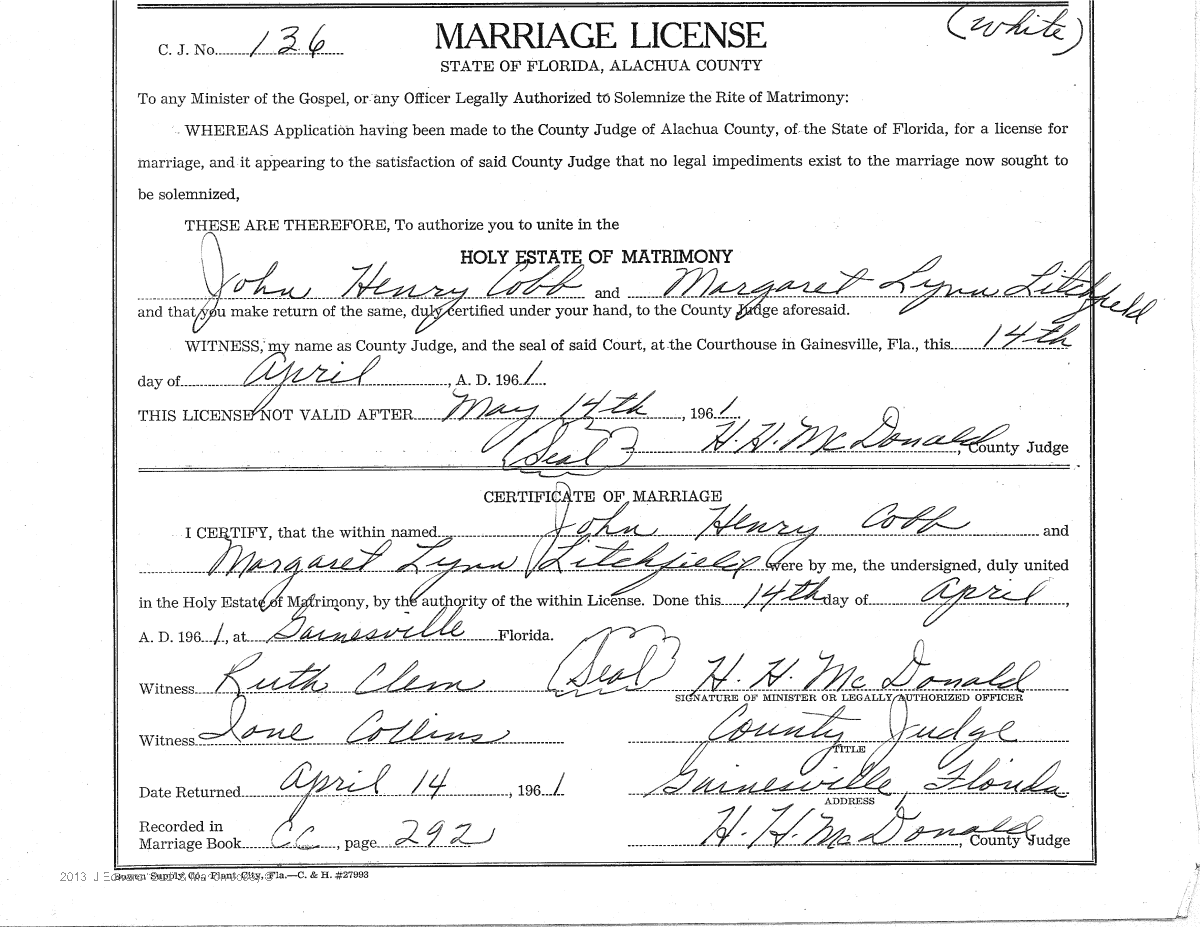 (White)
C. J. No. 136
MARRIAGE LICENSE
STATE OF FLORIDA, ALACHUA COUNTY
To any Minister of the Gospel, or any Officer Legally Authorized to Solemnize the Rite of Matrimony:
WHEREAS Application having been made to the County Judge of Alachua County, of the State of Florida, for a license for
marriage, and it appearing to the satisfaction of said County Judge that no legal impediments exist to the marriage now sought to
be solemnized,
THESE ARE THEREFORE, To authorize you to unite in the
HOLY ESTATE OF MATRIMONY
John Henry Cobb and Margaret Lynn Litchfield
and that you make return of the same, duly certified under your hand, to the County Judge aforesaid.
WITNESS, my name as County Judge, and the seal of said Court, at the Courthouse in Gainesville, Fla., this 14th
day of April, A. D. 1961.
THIS LICENSE NOT VALID AFTER May 14th, 1961
(Seal) H. H. McDonald, County Judge
CERTIFICATE OF MARRIAGE
I CERTIFY, that the within named John Henry Cobb and
Margaret Lynn Litchfield were by me, the undersigned, duly united
in the Holy Estate of Matrimony, by the authority of the within License. Done this 14th day of April,
A. D. 1961, at Gainesville Florida.
Witness Ruth Clem (Seal) H. H. McDonald
SIGNATURE OF MINISTER OR LEGALLY AUTHORIZED OFFICER
Witness Ione Collins County Judge
TITLE
Date Returned April 14, 1961 Gainesville, Florida
ADDRESS
Recorded in
Marriage Book CC, page 292 H. H. McDonald, County Judge
2013 J Bowen Supply Co., Plant City, Fla.—C. & H. #27993